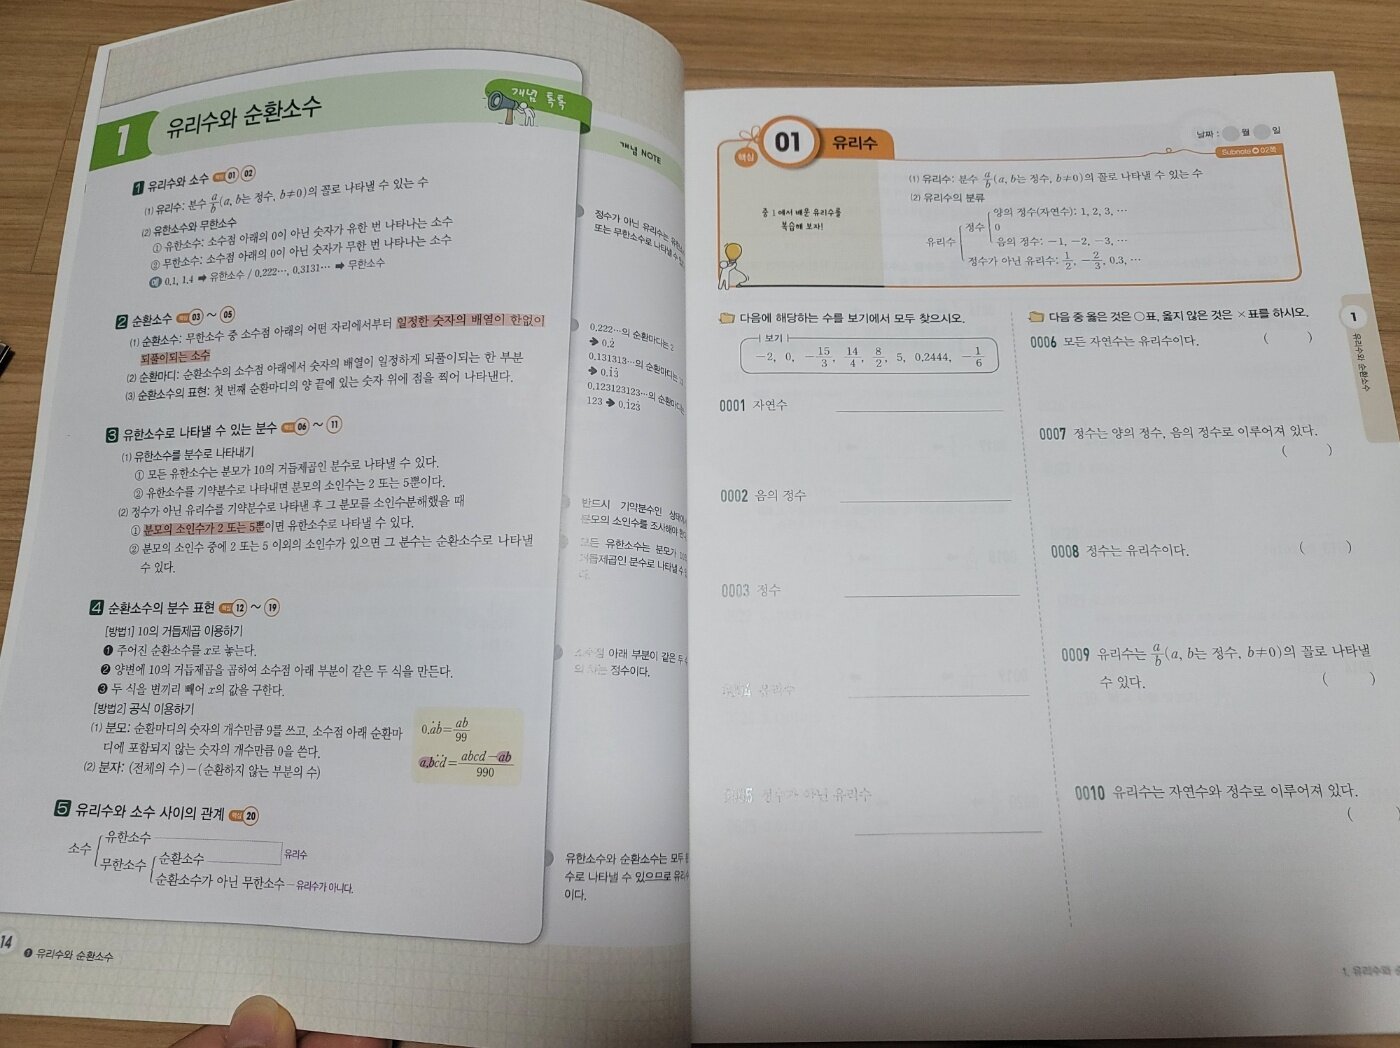 1 유리수와 순환소수
개념 톡톡
1 유리수와 소수 핵심 01 02
(1) 유리수: 분수 a/b(a, b는 정수, b≠0)의 꼴로 나타낼 수 있는 수
(2) 유한소수와 무한소수
① 유한소수: 소수점 아래의 0이 아닌 숫자가 유한 번 나타나는 소수
② 무한소수: 소수점 아래의 0이 아닌 숫자가 무한 번 나타나는 소수
예 0.1, 1.4 ➡ 유한소수 / 0.222⋯, 0.3131⋯ ➡ 무한소수
2 순환소수 핵심 03 ~ 05
(1) 순환소수: 무한소수 중 소수점 아래의 어떤 자리에서부터 일정한 숫자의 배열이 한없이
되풀이되는 소수
(2) 순환마디: 순환소수의 소수점 아래에서 숫자의 배열이 일정하게 되풀이되는 한 부분
(3) 순환소수의 표현: 첫 번째 순환마디의 양 끝에 있는 숫자 위에 점을 찍어 나타낸다.
3 유한소수로 나타낼 수 있는 분수 핵심 06 ~ 11
(1) 유한소수를 분수로 나타내기
① 모든 유한소수는 분모가 10의 거듭제곱인 분수로 나타낼 수 있다.
② 유한소수를 기약분수로 나타내면 분모의 소인수는 2 또는 5뿐이다.
(2) 정수가 아닌 유리수를 기약분수로 나타낸 후 그 분모를 소인수분해했을 때
① 분모의 소인수가 2 또는 5뿐이면 유한소수로 나타낼 수 있다.
② 분모의 소인수 중에 2 또는 5 이외의 소인수가 있으면 그 분수는 순환소수로 나타낼
수 있다.
4 순환소수의 분수 표현 핵심 12 ~ 19
[방법1] 10의 거듭제곱 이용하기
❶ 주어진 순환소수를 x로 놓는다.
❷ 양변에 10의 거듭제곱을 곱하여 소수점 아래 부분이 같은 두 식을 만든다.
❸ 두 식을 변끼리 빼어 x의 값을 구한다.
[방법2] 공식 이용하기
(1) 분모: 순환마디의 숫자의 개수만큼 9를 쓰고, 소수점 아래 순환마
디에 포함되지 않는 숫자의 개수만큼 0을 쓴다.
(2) 분자: (전체의 수)−(순환하지 않는 부분의 수)
0.ȧḃ=ab/99
a.bċḋ=abcd−ab/990
5 유리수와 소수 사이의 관계 핵심 20
소수
유한소수
무한소수
순환소수
유리수
순환소수가 아닌 무한소수 − 유리수가 아니다.
14
❶ 유리수와 순환소수
개념 NOTE
정수가 아닌 유리수는
또는 무한소수로 나타낼 수
0.222⋯의 순환마디는 2
➔ 0.2̇
0.131313⋯의 순환마디는
➔ 0.1̇3̇
0.123123123⋯의 순환마디는
123 ➔ 0.1̇23̇
반드시 기약분수인
분모의 소인수를 조사해야
모든 유한소수는 분모가
거듭제곱인 분수로 나타낼 수
다.
소수점 아래 부분이 같은 두
정수이다.
유한소수와 순환소수는 모두
수로 나타낼 수 있으므로
이다.
핵심 01 유리수
날짜 : 월 일
Subnote 02쪽
중 1에서 배운 유리수를
복습해 보자!
(1) 유리수: 분수 a/b(a, b는 정수, b≠0)의 꼴로 나타낼 수 있는 수
(2) 유리수의 분류
유리수
정수
양의 정수(자연수): 1, 2, 3, ⋯
0
음의 정수: −1, −2, −3, ⋯
정수가 아닌 유리수: 1/2, −2/3, 0.3, ⋯
다음에 해당하는 수를 보기에서 모두 찾으시오.
보기
−2, 0, −15/3, 14/4, 8/2, 5, 0.2444, −1/6
0001 자연수
0002 음의 정수
0003 정수
0004 유리수
0005 정수가 아닌 유리수
다음 중 옳은 것은 ○표, 옳지 않은 것은 ×표를 하시오.
0006 모든 자연수는 유리수이다. ( )
0007 정수는 양의 정수, 음의 정수로 이루어져 있다.
( )
0008 정수는 유리수이다. ( )
0009 유리수는 a/b(a, b는 정수, b≠0)의 꼴로 나타낼
수 있다. ( )
0010 유리수는 자연수와 정수로 이루어져 있다.
(
1
유리수와 순환소수
1. 유리수와